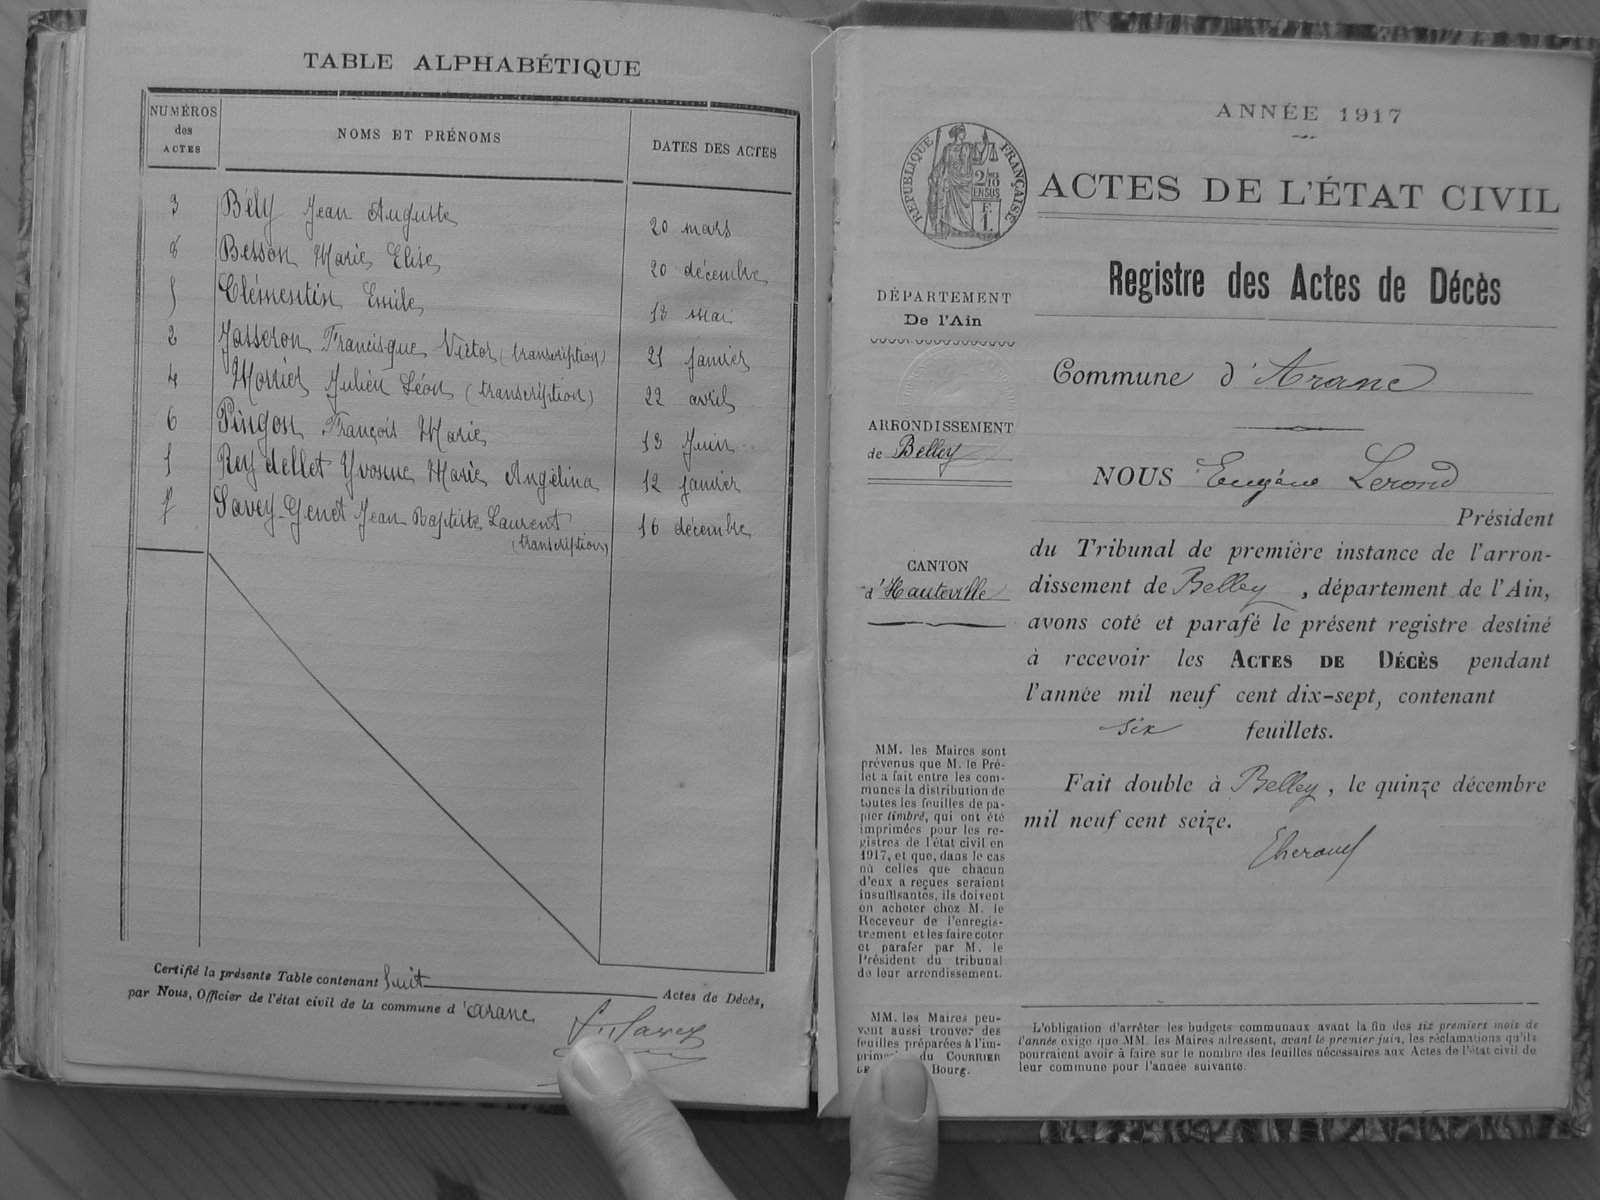 TABLE ALPHABÉTIQUE
NUMÉROS des ACTES
NOMS ET PRÉNOMS
DATES DES ACTES
3 Bély Jean Auguste 20 mars
8 Besson Marie Elise 20 décembre
5 Clémentin Emile 13 mai
2 Jasseron Francisque Victor (transcription) 21 janvier
4 Monier Julien Léon (transcription) 22 avril
6 Pingon François Marie 13 Juin
1 Reydellet Yvonne Marie Angélina 12 janvier
7 Savey-Genet Jean Baptiste Laurent 16 décembre
(transcription)
Certifié la présente Table contenant huit Actes de Décès,
par Nous, Officier de l'état civil de la commune d'Aranc
ANNÉE 1917
RÉPUBLIQUE FRANÇAISE
ACTES DE L'ÉTAT CIVIL
Registre des Actes de Décès
DÉPARTEMENT
De l'Ain
ARRONDISSEMENT
de Belley
CANTON
d'Hauteville
MM. les Maires sont
prévenus que M. le Pré-
fet a fait entre les com-
munes la distribution de
toutes les feuilles de pa-
pier timbré, qui ont été
imprimées pour les re-
gistres de l'état civil en
1917, et que, dans le cas
où celles que chacun
d'eux a reçues seraient
insuffisantes, ils doivent
en acheter chez M. le
Receveur de l'enregis-
trement et les faire coter
et parafer par M. le
Président du tribunal
de leur arrondissement.
MM. les Maires peu-
vent aussi trouver des
feuilles préparées à l'im-
du COURRIER
Bourg.
Commune d'Aranc
NOUS Eugène Lerond
Président
du Tribunal de première instance de l'arron-
dissement de Belley, département de l'Ain,
avons coté et parafé le présent registre destiné
à recevoir les ACTES DE DÉCÈS pendant
l'année mil neuf cent dix-sept, contenant
six feuillets.
Fait double à Belley, le quinze décembre
mil neuf cent seize.
L'obligation d'arrêter les budgets communaux avant la fin des six premiers mois de
l'année exige que MM. les Maires adressent, avant le premier juin, les réclamations qu'ils
pourraient avoir à faire sur le nombre des feuilles nécessaires aux Actes de l'état civil de
leur commune pour l'année suivante.